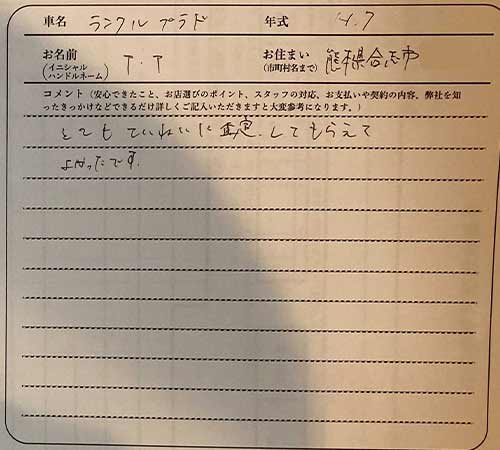 車名 ランクルプラド 年式 H.7
お名前 (イニシャル ハンドルネーム) T.T お住まい (市町村名まで) 熊本県合志市
コメント(安心できたこと、お店選びのポイント、スタッフの対応、お支払いや契約の内容、弊社を知
ったきっかけなどできるだけ詳しくご記入いただきますと大変参考になります。)
とてもていねいに査定してもらえて
よかったです。